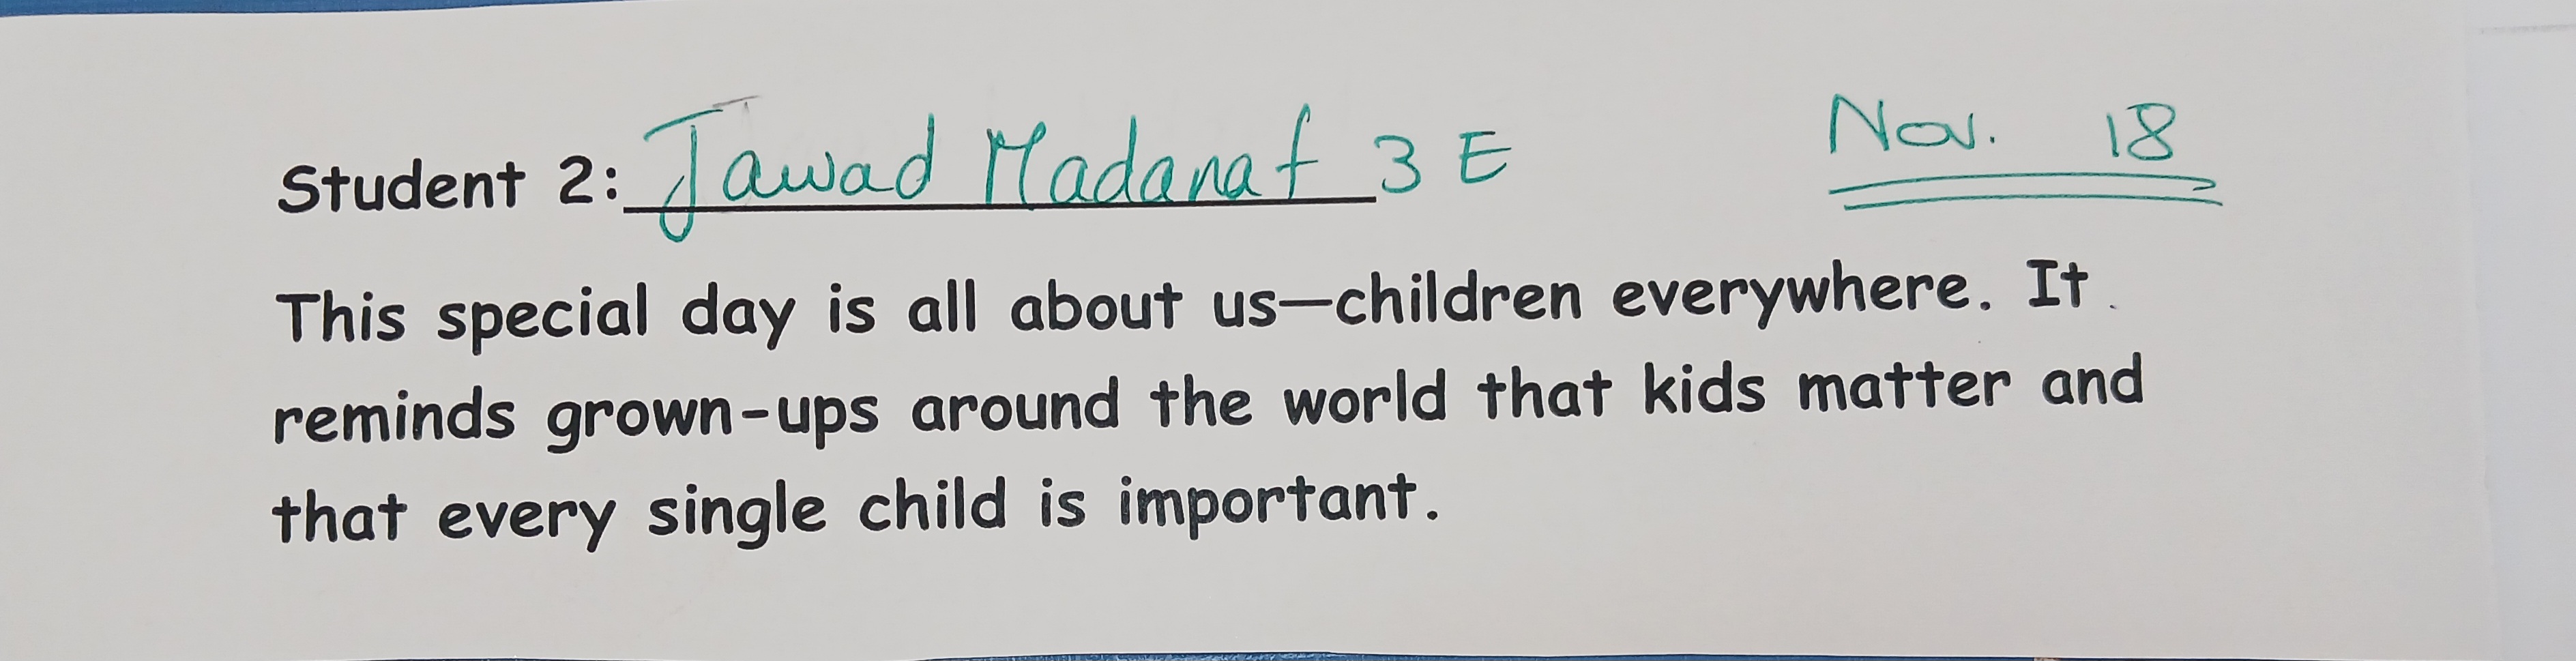 Student 2: Jawad Madanat 3 E Nov. 18
This special day is all about us—children everywhere. It
reminds grown-ups around the world that kids matter and
that every single child is important.